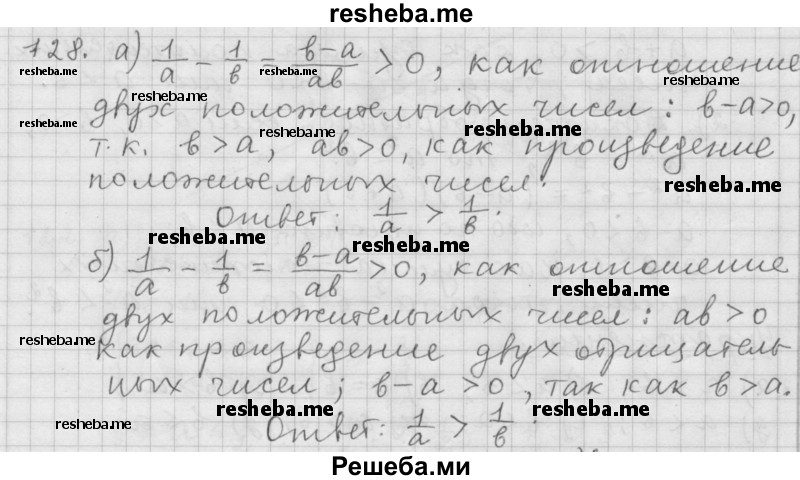 resheba.me
728. а) 1/a - 1/b = b-a/ab > 0, как отношение
resheba.me resheba.me resheba.me
resheba.me
двух положительных чисел: b-a>0,
resheba.me resheba.me resheba.me
т.к. b>a, ab>0, как произведение
положительных чисел.
resheba.me
Ответ: 1/a > 1/b.
resheba.me resheba.me
б) 1/a - 1/b = b-a/ab > 0, как отношение
resheba.me
двух положительных чисел: ab>0
resheba.me
как произведение двух отрицатель-
ных чисел; b-a>0, так как b>a.
resheba.me resheba.me resheba.me
Ответ: 1/a > 1/b.
Решеба.ми